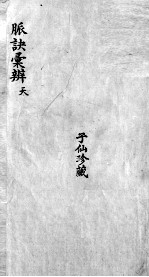 脈訣彙辨 天
子仙珍藏